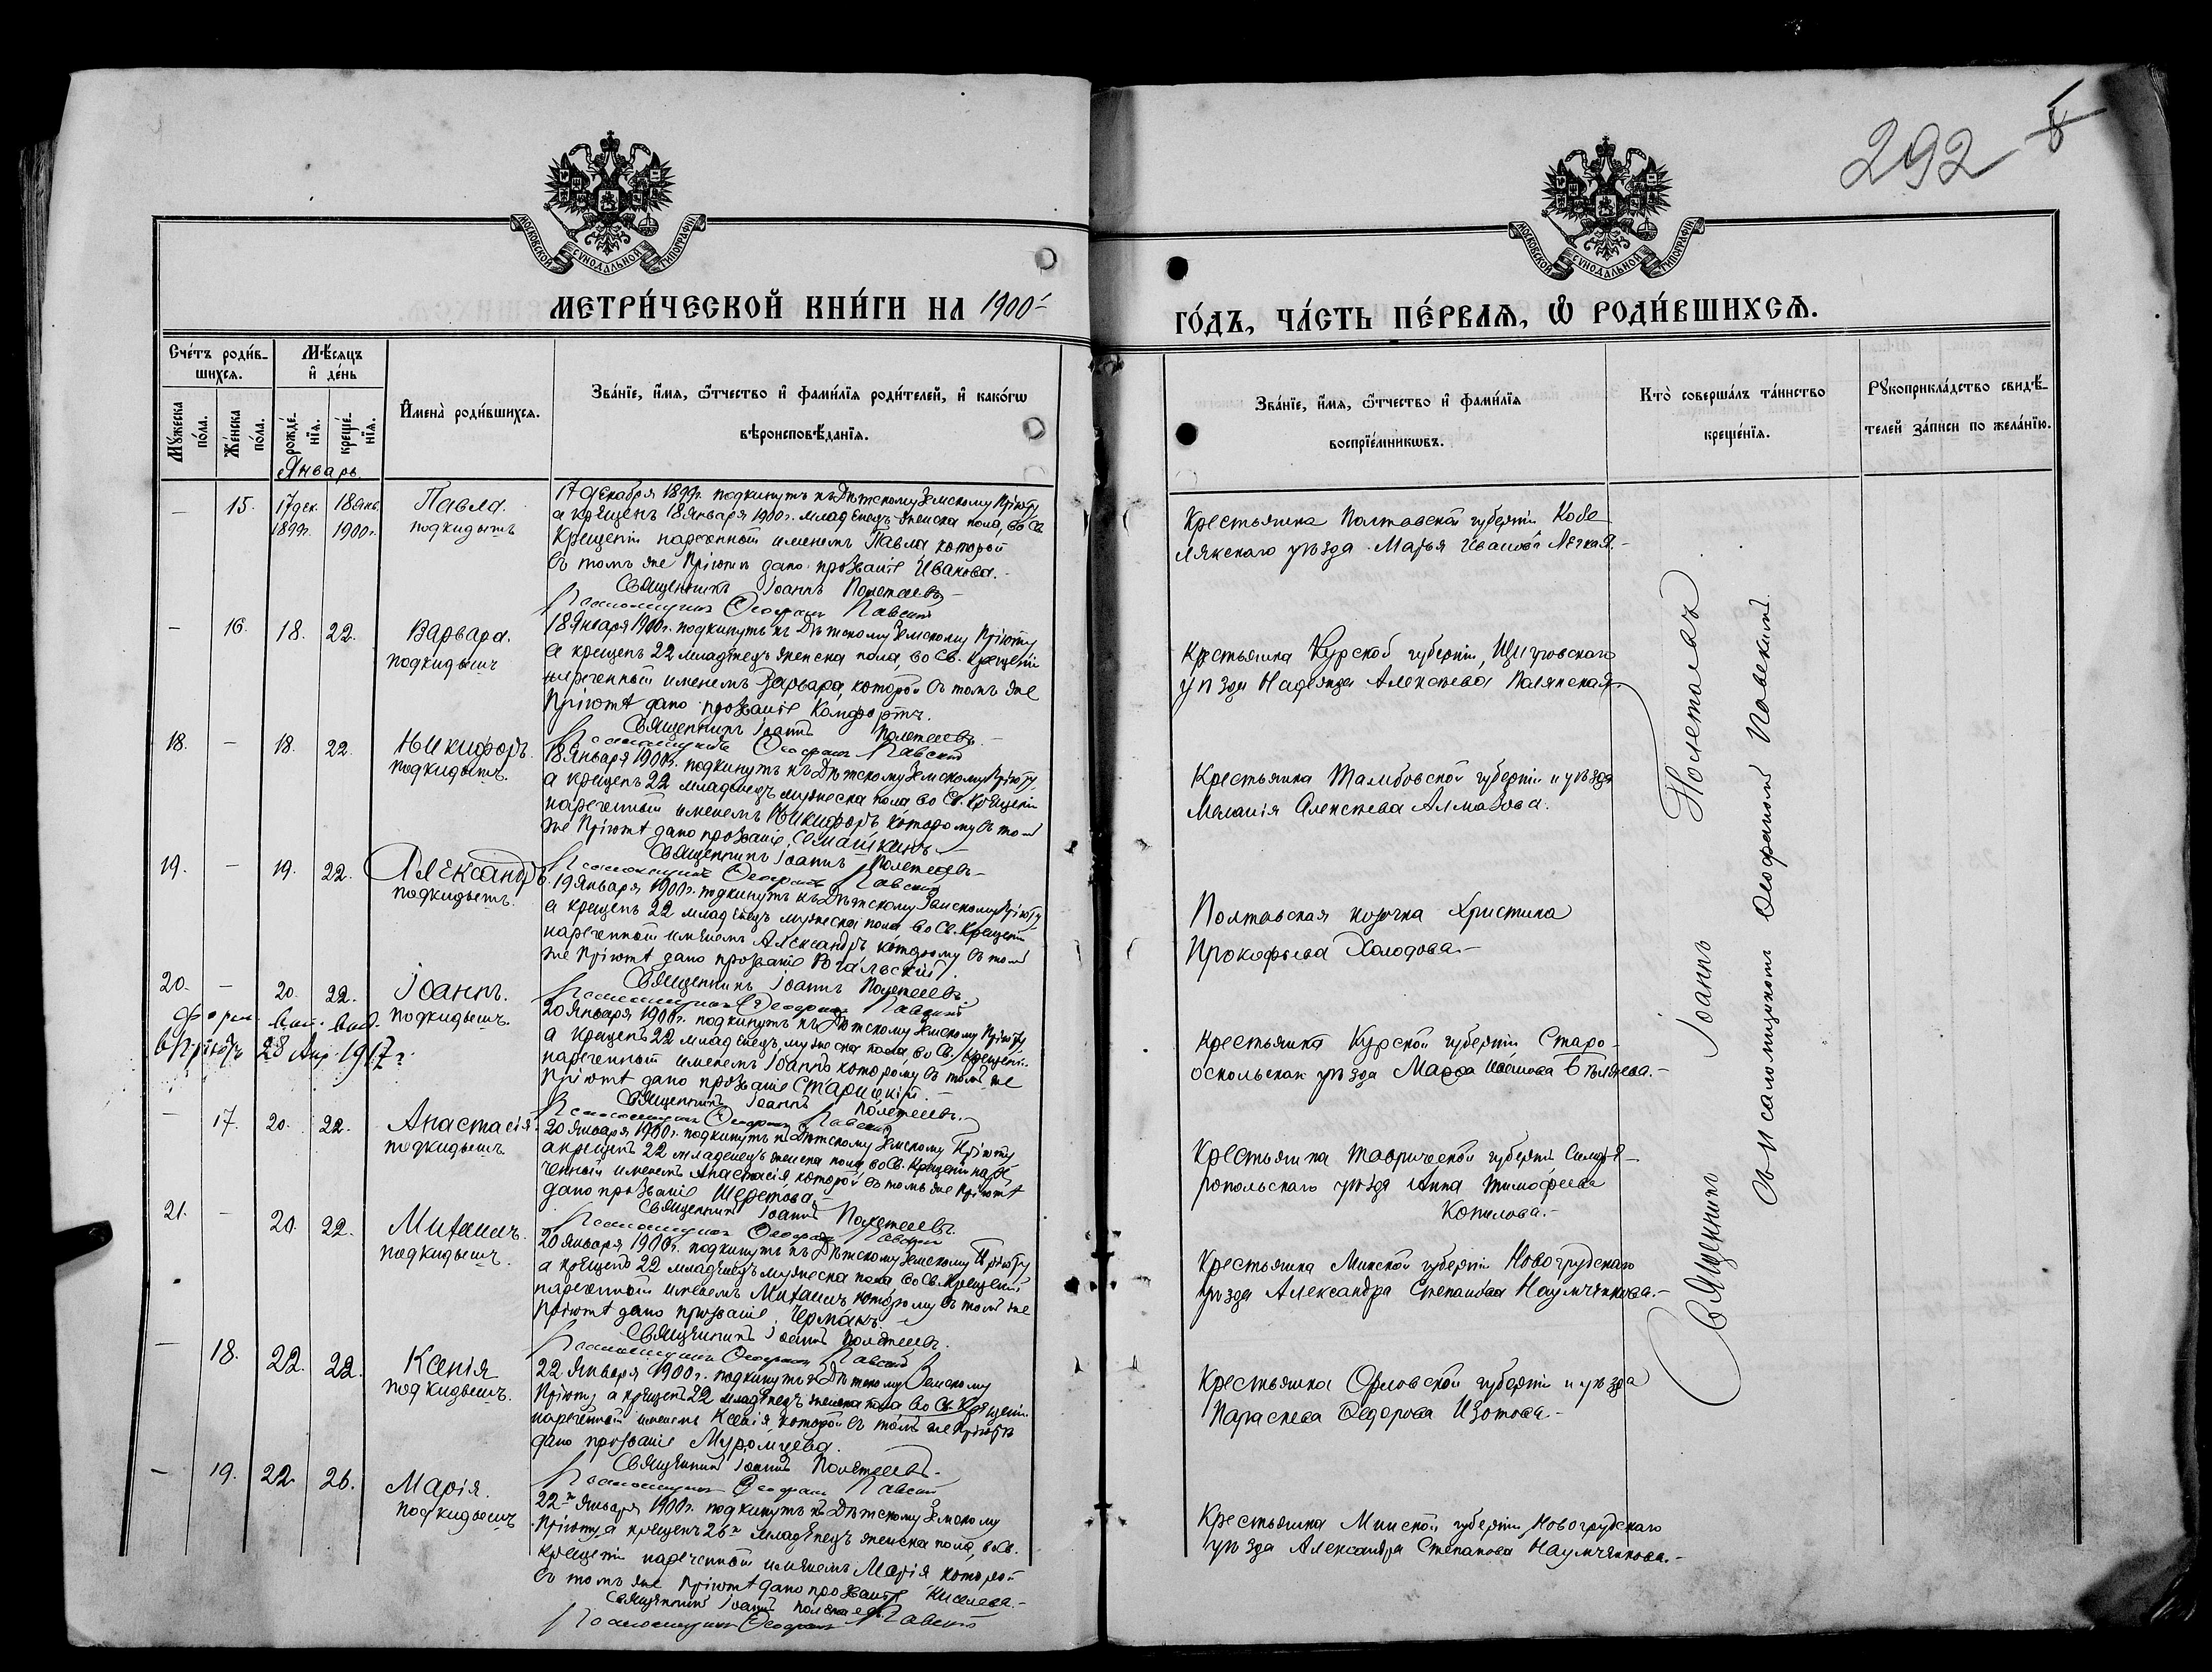 292
8
МОСКОВСКОЙ СУНОДАЛЬНОЙ ТИПОГРАФІИ
МОСКОВСКОЙ СУНОДАЛЬНОЙ ТИПОГРАФІИ
МЕТРИ́ЧЕСКОЙ КНИ́ГИ НА 1900
ГО́ДЪ, ЧА́СТЬ ПЕ́РВАѦ, Ѡ РОДИ́ВШИХСѦ.
Сче́тъ роди́в-
шихсѧ.
Мꙋ́жеска
по́ла.
Же́нска
по́ла.
Мѣ́сѧцъ
и҆ де́нь
рожде́-
нїѧ.
креще́-
нїѧ.
И҆мена̀ роди́вшихсѧ.
Зва́нїе, и҆́мѧ, ѻ҆́тчество и҆ фами́лїѧ роди́телей, и҆ како́гѡ
вѣроисповѣ́данїѧ.
Зва́нїе, и҆́мѧ, ѻ҆́тчество и҆ фами́лїѧ
воспрїе́мникѡвъ.
Кто̀ соверша́лъ та́инство
креще́нїѧ.
Рꙋкоприкла́дство свидѣ́-
телей за́писи по жела́нїю.
Январь.
– 15. 17 дек. 18 янв.
1899г. 1900г.
Павла.
подкидышъ
17 декабря 1899г. подкинутъ къ Дѣтскому Земскому Пріюту
а крещенъ 18 Января 1900г. младенецъ женска пола, во Св.
Крещеніи нареченный именемъ Павла которой
въ томъ же Пріютѣ дано прозваніе Иванова.
Священникъ Іоаннъ Полетаевъ
Псаломщикъ Ѳеофанъ Павскій
Крестьянка Полтавской губерніи Кобе-
лякскаго уѣзда Марья Иванова Легкая.
– 16. 18. 22.
Варвара.
подкидышъ
18 Января 1900г. подкинутъ къ Дѣтскому Земскому Пріюту
а крещенъ 22 младенецъ женска пола, во Св. Крещеніи
нареченный именемъ Варвара которой въ томъ же
Пріютѣ дано прозваніе Комфортъ.
Священникъ Іоаннъ Полетаевъ.
Псаломщикъ Ѳеофанъ Павскій
Крестьянка Курской губерніи, Щигровскаго
уѣзда Надежда Алексѣева Полянская.
18. – 18. 22.
Никифоръ.
подкидышъ.
18 Января 1900г. подкинутъ къ Дѣтскому Земскому Пріюту,
а крещенъ 22 младенецъ мужеска пола во Св. Крещеніи
нареченный именемъ Никифоръ которому въ томъ
же Пріютѣ дано прозваніе Семашкинъ.
Священникъ Іоаннъ Полетаевъ
Псаломщикъ Ѳеофанъ Павскій
Крестьянка Тамбовской губерніи и уѣзда
Меланія Алексѣева Алмазова.
19. – 19. 22.
Александръ.
подкидышъ.
19 Января 1900г. подкинутъ къ Дѣтскому Земскому Пріюту
а крещенъ 22 младенецъ мужеска пола во Св. Крещеніи
нареченный именемъ Александръ которому въ томъ
же Пріютѣ дано прозваніе
Священникъ Іоаннъ Полетаевъ.
Псаломщикъ Ѳеофанъ Павскій
Полтавская козачка Христина
Прокофьева Холодова.
20. – 20. 22.
Іоаннъ.
подкидышъ.
28 Апр. 1917 г.
20 Января 1900г. подкинутъ къ Дѣтскому Земскому Пріюту
а крещенъ 22 младенецъ, мужеска пола во Св. Крещеніи
нареченный именемъ Іоаннъ которому въ томъ же
Пріютѣ дано прозваніе Старицкій.
Священникъ Іоаннъ Полетаевъ.
Псаломщикъ Ѳеофанъ Павскій
Крестьянка Курской губерніи Старо-
оскольскаго уѣзда Марфа Иванова Бѣляева.
– 17. 20. 22.
Анастасія
подкидышъ.
20 Января 1900г. подкинутъ къ Дѣтскому Земскому Пріюту
а крещенъ 22 младенецъ женска пола во Св. Крещеніи наре-
ченный именемъ Анастасія которой въ томъ же Пріютѣ
дано прозваніе Шеретова.
Священникъ Іоаннъ Полетаевъ.
Псаломщикъ Ѳеофанъ Павскій
Крестьянка Таврической губерніи Симфе-
ропольскаго уѣзда Анна Тимофеева
Копылова.
21. – 20. 22.
Михаилъ.
подкидышъ.
20 Января 1900г. подкинутъ къ Дѣтскому Земскому Пріюту
а крещенъ 22 младенецъ мужеска пола во Св. Крещеніи
нареченный именемъ Михаилъ которому въ томъ же
Пріютѣ дано прозваніе Чермакъ.
Священникъ Іоаннъ Полетаевъ.
Псаломщикъ Ѳеофанъ Павскій
Крестьянка Минской губерніи Новогрудскаго
уѣзда Александра Степанова Наумчикова.
– 18. 22. 22.
Ксенія
подкидышъ.
22 Января 1900г. подкинутъ къ Дѣтскому Земскому
Пріюту, а крещенъ 22 младенецъ женска пола во Св. Крещеніи
нареченный именемъ Ксенія которой въ томъ же Пріютѣ
дано прозваніе Муромцева.
Священникъ Іоаннъ Полетаевъ.
Псаломщикъ Ѳеофанъ Павскій
Крестьянка Орловской губерніи и уѣзда
Параскева Ѳедорова Изотова.
– 19. 22. 26.
Марія.
подкидышъ
22 Января 1900г. подкинутъ къ Дѣтскому Земскому
Пріюту а крещенъ 26 младенецъ женска пола, во Св.
Крещеніи нареченный именемъ Марія которой
въ томъ же Пріютѣ дано прозваніе Киселева.
Священникъ Іоаннъ Полетаевъ.
Псаломщикъ Ѳеофанъ Павскій
Крестьянка Минской губерніи, Новогрудскаго
уѣзда Александра Степанова Наумчикова.
Священникъ Іоаннъ Полетаевъ
съ псаломщикомъ Ѳеофаномъ Павскимъ.